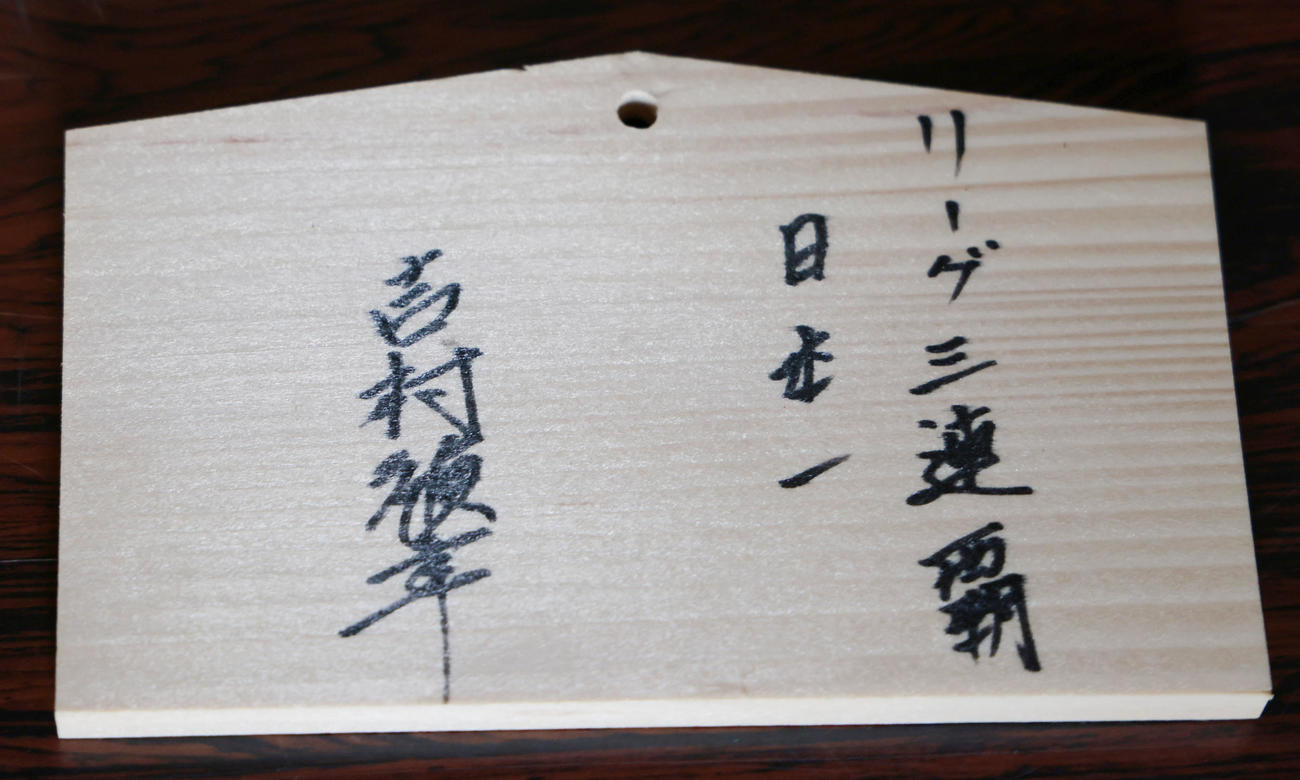 リーグ三連覇
日本一
吉村禎章